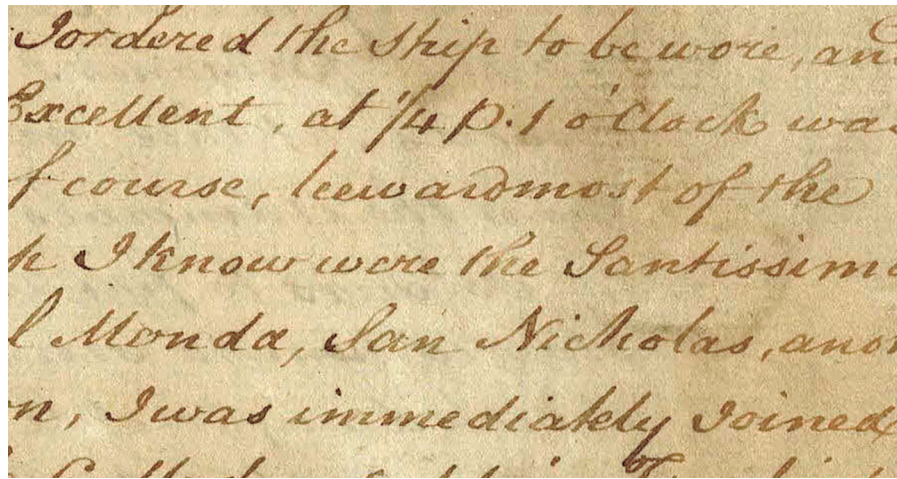 I ordered the ship to be wore, an
Excellent, at 1/4 p. 1 o'Clock was
f course, leewardmost of the
h I know were the Santissim
l Monda, San Nicholas, ano
n, I was immediately Joined